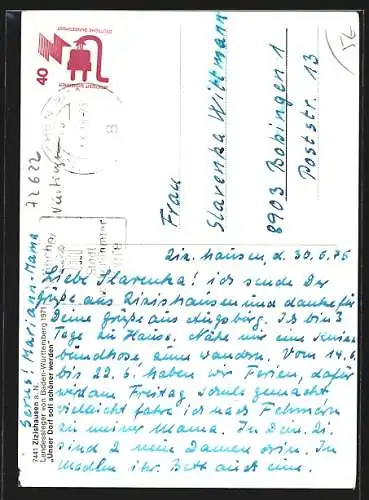 40
DEUTSCHE BUNDESPOST
Frau
Slavenka Wittmann
8903 Bobingen 1
Poststr. 13
72622
Nürtingen
52
Zizishausen, d. 30.6.75
Liebe Slavenka! ich sende Dir
Grüße aus Zizishausen und danke für
Deine Grüße aus Augsburg. Ich bin 3
Tage zu Hause. Nähe mir eine Knie
bundhose, zum wandern. Vom 14.6.
bis 22.6. haben wir Ferien, dafür
wird am Freitag Schule gemacht,
vielleicht fahre ich nach Fehmarn
zu meiner Mama. In Dein. Zi.
sind 2 neue Damen drin. In
ihr. Bett auch eine.
Servus! Mariann-Mama
7441 Zizishausen a. N.
Landessieger von Baden-Württemberg 1971
Unser Dorf soll schöner werden